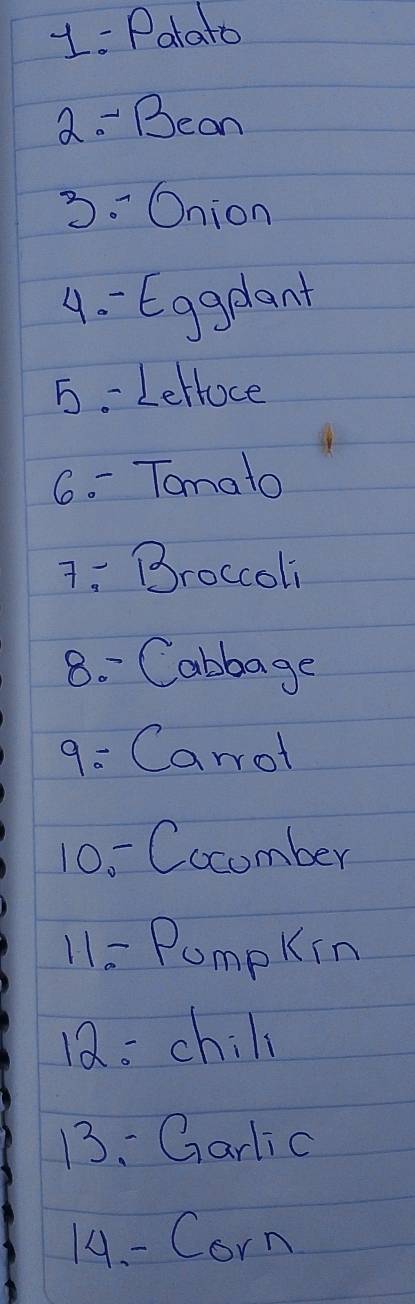 1.- Patato
2.- Bean
3.- Onion
4.- Eggplant
5.- Lettuce
6.- Tomato
7.- Broccoli
8.- Cabbage
9.- Carrot
10.- Cocomber
11.- Pumpkin
12.- chili
13.- Garlic
14.- Corn